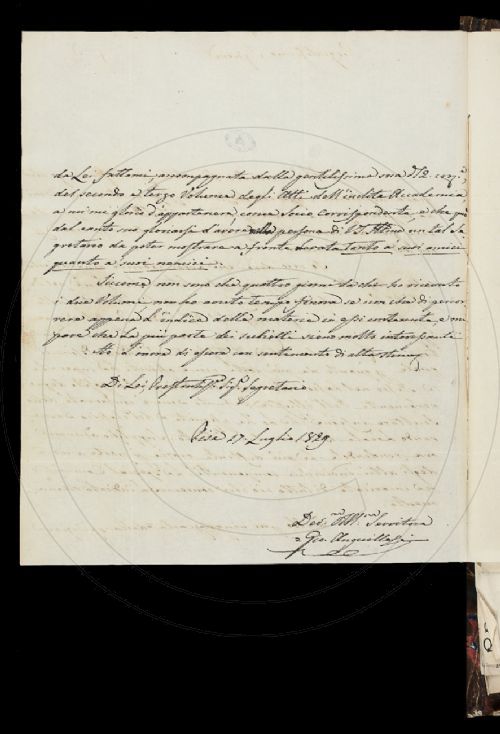 da Lei fattami, accompagnata dalla gentilissima sua de' 12 corr.e,
del secondo e terzo Volume degli Atti dell'inclita Accademia,
a cui mi glorio d'appartenere, come Socio corrispondente, e che può
dal canto suo gloriarsi d'avere nella persona di un tal Se-
gretario da poter mostrare a fronte tanto a suoi amici
quanto a suoi nemici.
Siccome non sono che quattro giorni da che ho ricevuto
i due Volumi, non ho avuto tempo finora se non che di percor-
rere appena l'indice delle materie in essi contenute, e mi
pare che la più parte dei siano molto interessanti
Ho l'onore di essere con sentimento di alta stima
Di Lei Prestantiss.o Sig.r Segretario
Pisa 17 Luglio 1829
Dev.mo Obb.mo Servitore
Gio. Anguillesi